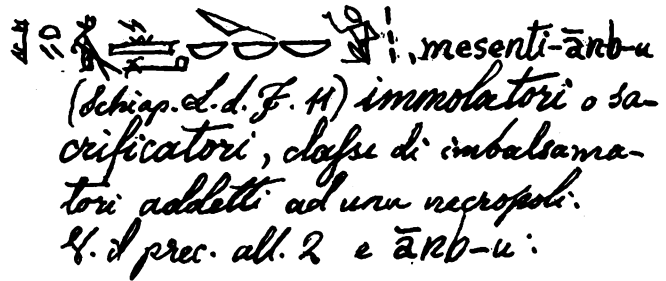 , mesenti-ānb-u
(Schiap. L. d. F. 11) immolatori o sa-
crificatori, classe di imbalsama-
tori addetti ad una necropoli.
V. il prec. all. 2 e ānb-u: